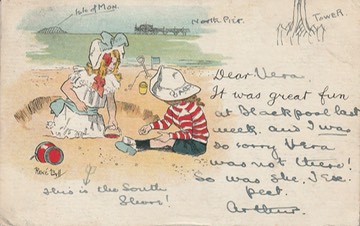 Isle of Man
North Pier
TOWER
Dear Vera
It was great fun
at Blackpool last
week, and I was
so sorry Vera
was not there!
So was she, I Ex-
pect.
Arthur.
This is the South
Shore!